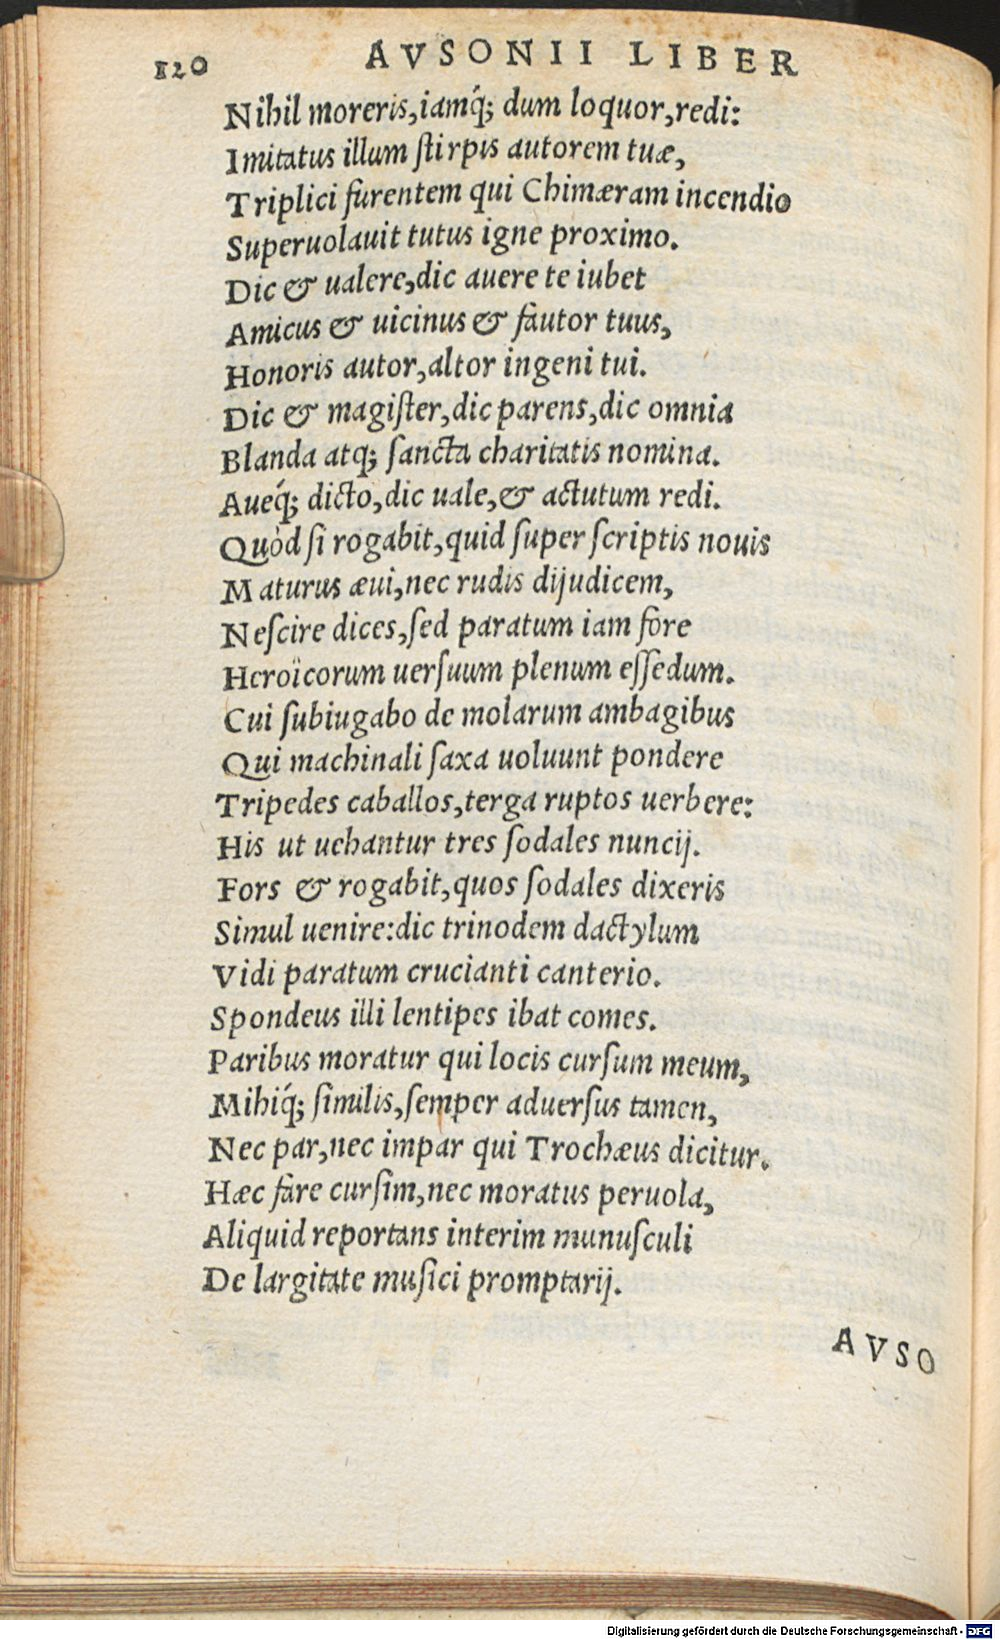 120 AVSONII LIBER
Nihil moreris,iamq́; dum loquor,redi:
Imitatus illum ſtirpis autorem tuæ,
Triplici furentem qui Chimæram incendio
Superuolauit tutus igne proximo.
Dic & ualere,dic auere te iubet
Amicus & uicinus & fautor tuus,
Honoris autor,altor ingeni tui.
Dic & magiſter,dic parens,dic omnia
Blanda atq; ſancta charitatis nomina.
Aueq́; dicto,dic uale,& actutum redi.
Quòd ſi rogabit,quid ſuper ſcriptis nouis
Maturus æui,nec rudis dijudicem,
Neſcire dices,ſed paratum iam fore
Heroïcorum uerſuum plenum eſſedum.
Cui ſubiugabo de molarum ambagibus
Qui machinali ſaxa uoluunt pondere
Tripedes caballos,terga ruptos uerbere:
His ut uehantur tres ſodales nuncij.
Fors & rogabit,quos ſodales dixeris
Simul uenire:dic trinodem dactylum
Vidi paratum crucianti canterio.
Spondeus illi lentipes ibat comes.
Paribus moratur qui locis curſum meum,
Mihiq́; ſimilis,ſemper aduerſus tamen,
Nec par,nec impar qui Trochæus dicitur.
Hæc fare curſim,nec moratus peruola,
Aliquid reportans interim munuſculi
De largitate muſici promptarij.
AVSO
Digitalisierung gefördert durch die Deutsche Forschungsgemeinschaft - DFG